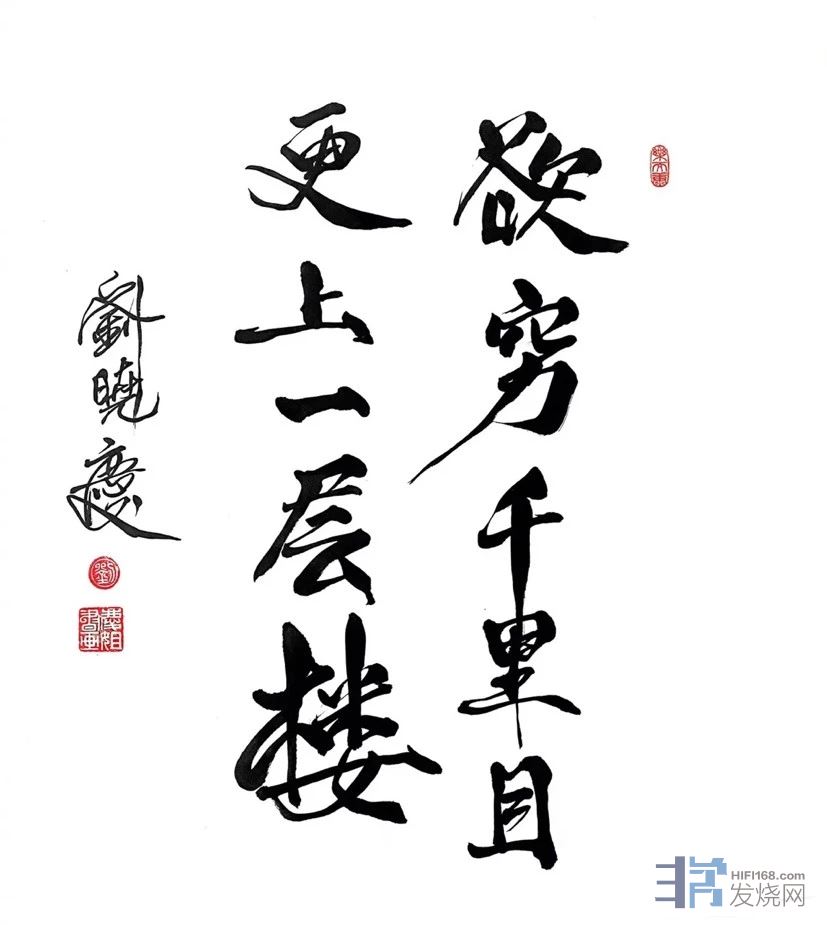 欲穷千里目
更上一层楼
劉曉慶
劉
慶姐書画
HIFI168.com
发烧网